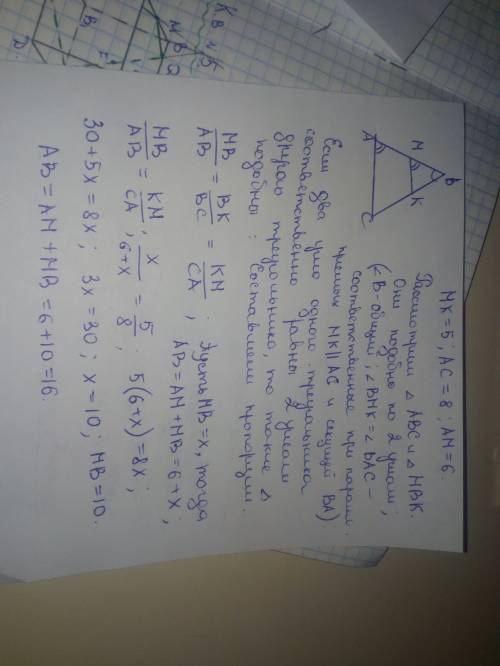 К. В и 5
M
B
D
B
M
K
A
C
MK=5; AC=8; AM=6.
Рассмотрим △ABC и △MBK.
Они подобно по 2 углам;
(∠B-общий; ∠BMK=∠BAC –
соответственные при паралл.
прямых MK||AC и секущей BA)
Если два угла одного треугольника
соответственно равны 2 углам
другого треугольника, то такие △
подобны. Составляем пропорции.
MB/AB = BK/BC = KM/CA; Пусть MB=x, тогда
AB=AM+MB=6+x;
MB/AB = KM/CA; x/6+x = 5/8; 5(6+x)=8x;
30+5x=8x; 3x=30; x=10; MB=10.
AB=AM+MB=6+10=16.